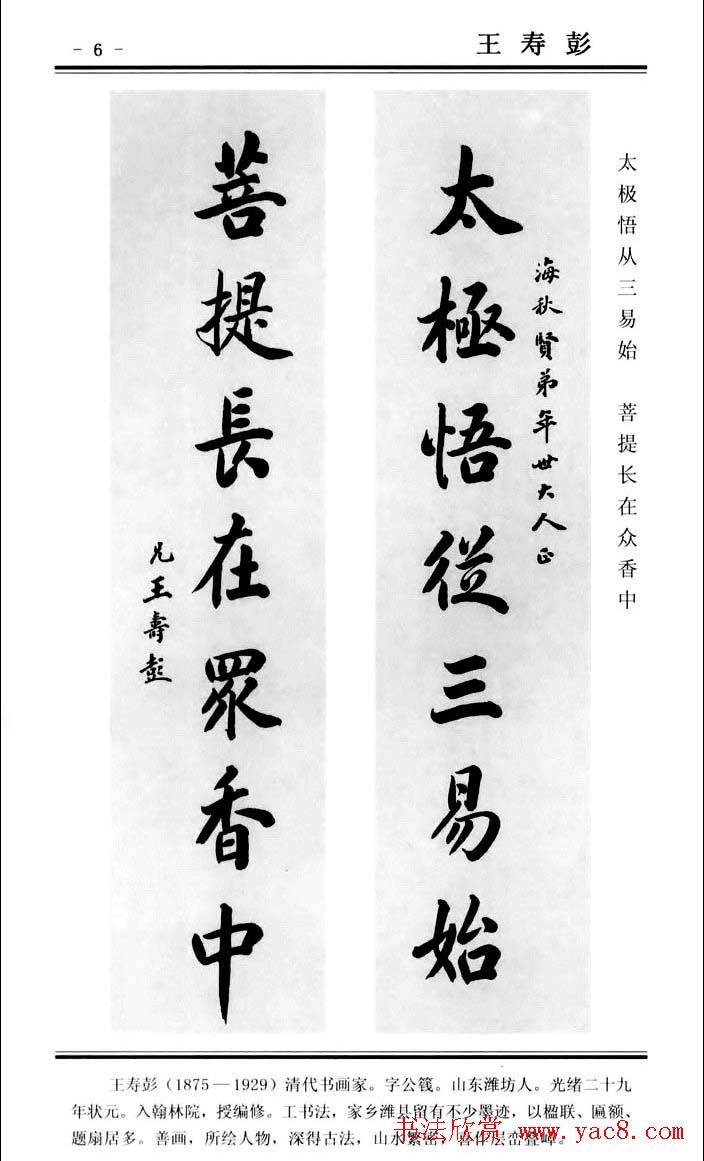 - 6 -
王寿彭
太极悟从三易始 菩提长在众香中
海秋賢弟年世大人正
太極悟從三易始
菩提長在眾香中
兄王壽彭
王寿彭（1875—1929）清代书画家。字公篯。山东潍坊人。光绪二十九
年状元。入翰林院，授编修。工书法，家乡潍县留有不少墨迹，以楹联、匾额、
题扇居多。善画，所绘人物，深得古法，山水繁密，喜作层峦叠嶂。
书法欣赏 www.yac8.com